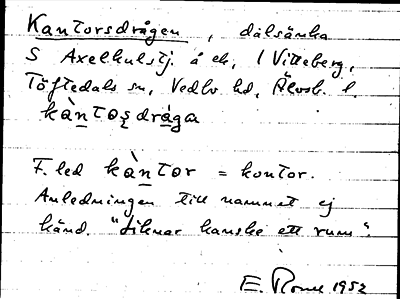 Kantorsdrågen, dalsänka
S Axelhulstj. å ek, l Vitteberg,
Töftedals sn, Vedbo hd, Älvsb. l.
kàntoşdråga
F. led kàntor = kontor.
Anledningen till namnet ej
känd. "Liknar kanske ett rum".
E. 1952